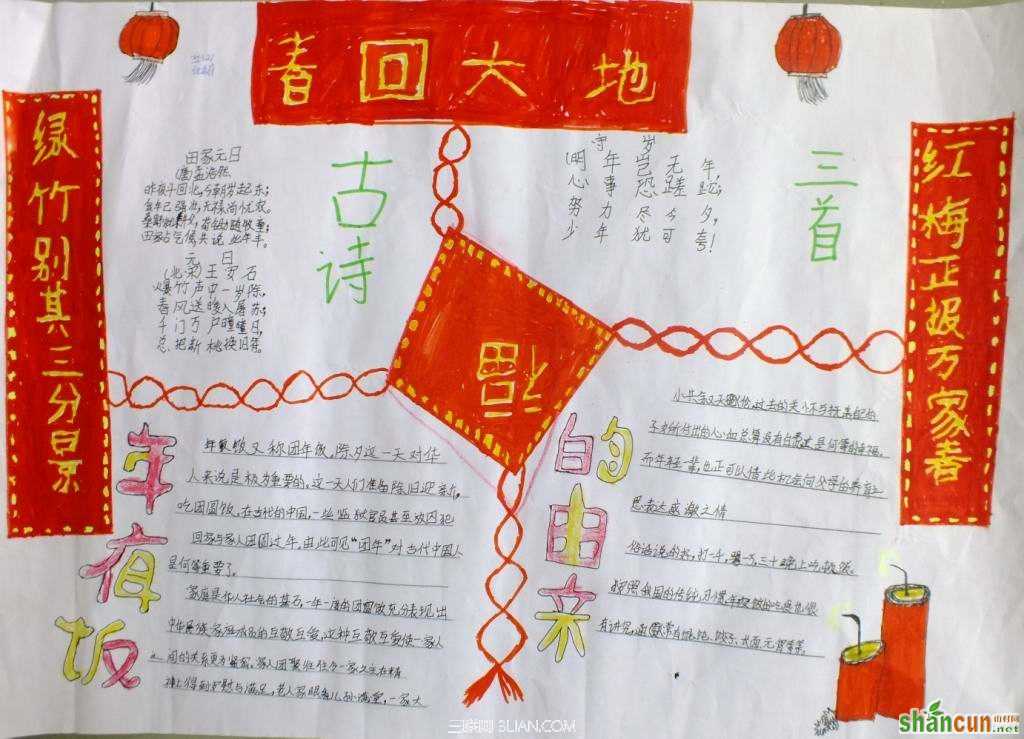 春回大地
绿竹别其三分景
红梅正报万家春
古诗
三首
田家元日
(唐)孟浩然
昨夜斗回北,今朝岁起东;
我年已强壮,无禄尚忧农。
桑野就耕父,荷锄随牧童;
田家占气候,共说此年丰。
元日
(北宋)王安石
爆竹声中一岁除,
春风送暖入屠苏;
千门万户瞳瞳日,
总把新桃换旧符。
守岁
(明年岂无年,
心事恐蹉跎;
努力尽今夕,
少年犹可夸!
福
年有饭
的由来
年夜饭又称团年饭,除夕这一天对华
人来说是极为重要的,这一天人们准备除旧迎新,
吃团圆饭,在古代的中国,一些监狱官员甚至放囚犯
回家与家人团圆过年,由此可见“团年”对古代中国人
是何等重要了。
家庭是华人社会的基石,一年一度的团圆饭充分表现出
中华民族家庭成员的互敬互爱,这种互敬互爱使一家人
间的关系更为紧密。家人团聚往往令一家之主在精
神上得到安慰与满足,老人家眼看儿孙满堂,一家大
小共叙天伦,过去的关怀与抚养子女
所付出的心血总算没有白费,这是何等的幸福。
而年轻一辈,也正可以借此机会向父母的养育之
恩表达感激之情
有讲究,通常有馄饨、饺子、长面、元宵等。
三联网 3LIAN.COM
shancun
山村网
.net